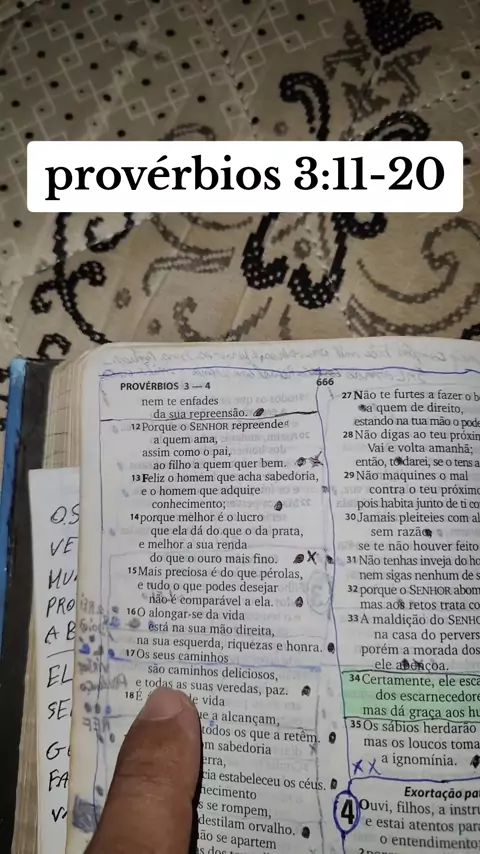 provérbios 3:11-20
PROVÉRBIOS 3 — 4
666
nem te enfades
da sua repreensão.
12 Porque o SENHOR repreende
a quem ama,
assim como o pai,
ao filho a quem quer bem.
13 Feliz o homem que acha sabedoria,
e o homem que adquire
conhecimento;
14 porque melhor é o lucro
que ela dá do que o da prata,
e melhor a sua renda
do que o ouro mais fino.
15 Mais preciosa é do que pérolas,
e tudo o que podes desejar
não é comparável a ela.
16 O alongar-se da vida
está na sua mão direita,
na sua esquerda, riquezas e honra.
17 Os seus caminhos
são caminhos deliciosos,
e todas as suas veredas, paz.
18 É
de vida
e a alcançam,
todos os que a retêm.
sabedoria
erra,
cia estabeleceu os céus.
hecimento
s se rompem,
destilam orvalho.
ão se apartem
27 Não te furtes a fazer o b
a quem de direito,
estando na tua mão o pode
28 Não digas ao teu próxim
Vai e volta amanhã;
então, to darei, se o tens a
29 Não maquines o mal
contra o teu próximo
pois habita junto de ti co
30 Jamais pleiteies com al
sem razão,
se te não houver feito
31 Não tenhas inveja do ho
nem sigas nenhum de s
32 porque o SENHOR abom
mas aos retos trata co
33 A maldição do SENH
na casa do pervers
porém a morada dos
ele abençoa.
34 Certamente, ele esca
dos escarnecedore
mas dá graça aos hu
35 Os sábios herdarão
mas os loucos toma
a ignomínia.
Exortação pa
4 Ouvi, filhos, a instru
e estai atentos para
o entendimento;
O.S
VE
MU
PRO
A B
EL
SE
G
FA
V